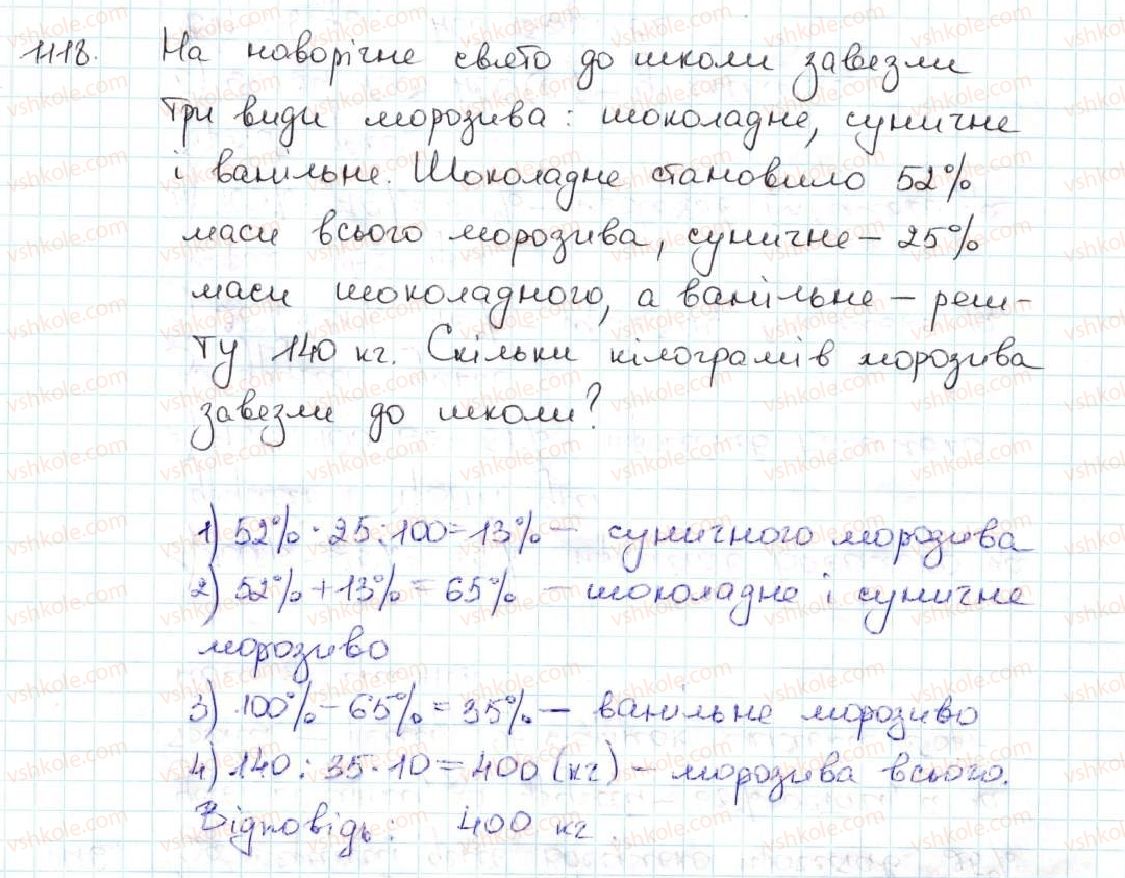 1118. На наворічне свято до школи завезли
три види морозива: шоколадне, суничне
і ванільне. Шоколадне становило 52%
маси всього морозива, суничне – 25%
маси шоколадного, а ванільне – реш-
ту 140 кг. Скільки кілограмів морозива
завезли до школи?
1) 52% · 25 : 100 = 13% – суничного морозива
2) 52% + 13% = 65% – шоколадне і суничне
морозиво
3) 100% – 65% = 35% – ванільне морозиво
4) 140 : 35 · 10 = 400 (кг) – морозива всього.
Відповідь: 400 кг.